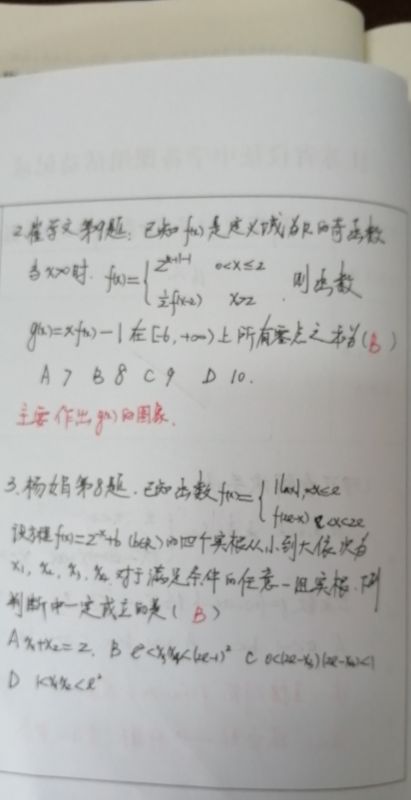 2.崔学文第9题:已知f(x)是定义域为R的奇函数
当x>0时.f(x)={2^{|x-1|-1} 0<x≤2
½f(x-2) x>2 .则函数
g(x)=xf(x)-1在[-6,+∞)上所有零点之和为(B)
A 7 B 8 C 9 D 10.
主要作出g(x)的图象.
3.杨娟第8题.已知函数f(x)={|lnx|,0<x≤e
f(2e-x) e<x<2e
设方程f(x)=2^x+b(b∈R)的四个实根从小到大依次为
x₁,x₂,x₃,x₄.对于满足条件的任意一组实根.下列
判断中一定成立的是(B)
A x₁+x₂=2. B e²<x₃x₄<(2e-1)² C 0<(2e-x₃)(2e-x₄)<1
D 1<x₁x₂<e²